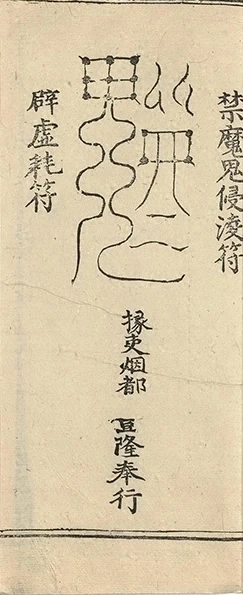 禁魔鬼侵淩符
掾吏烟都 豆隆奉行
辟虛耗符